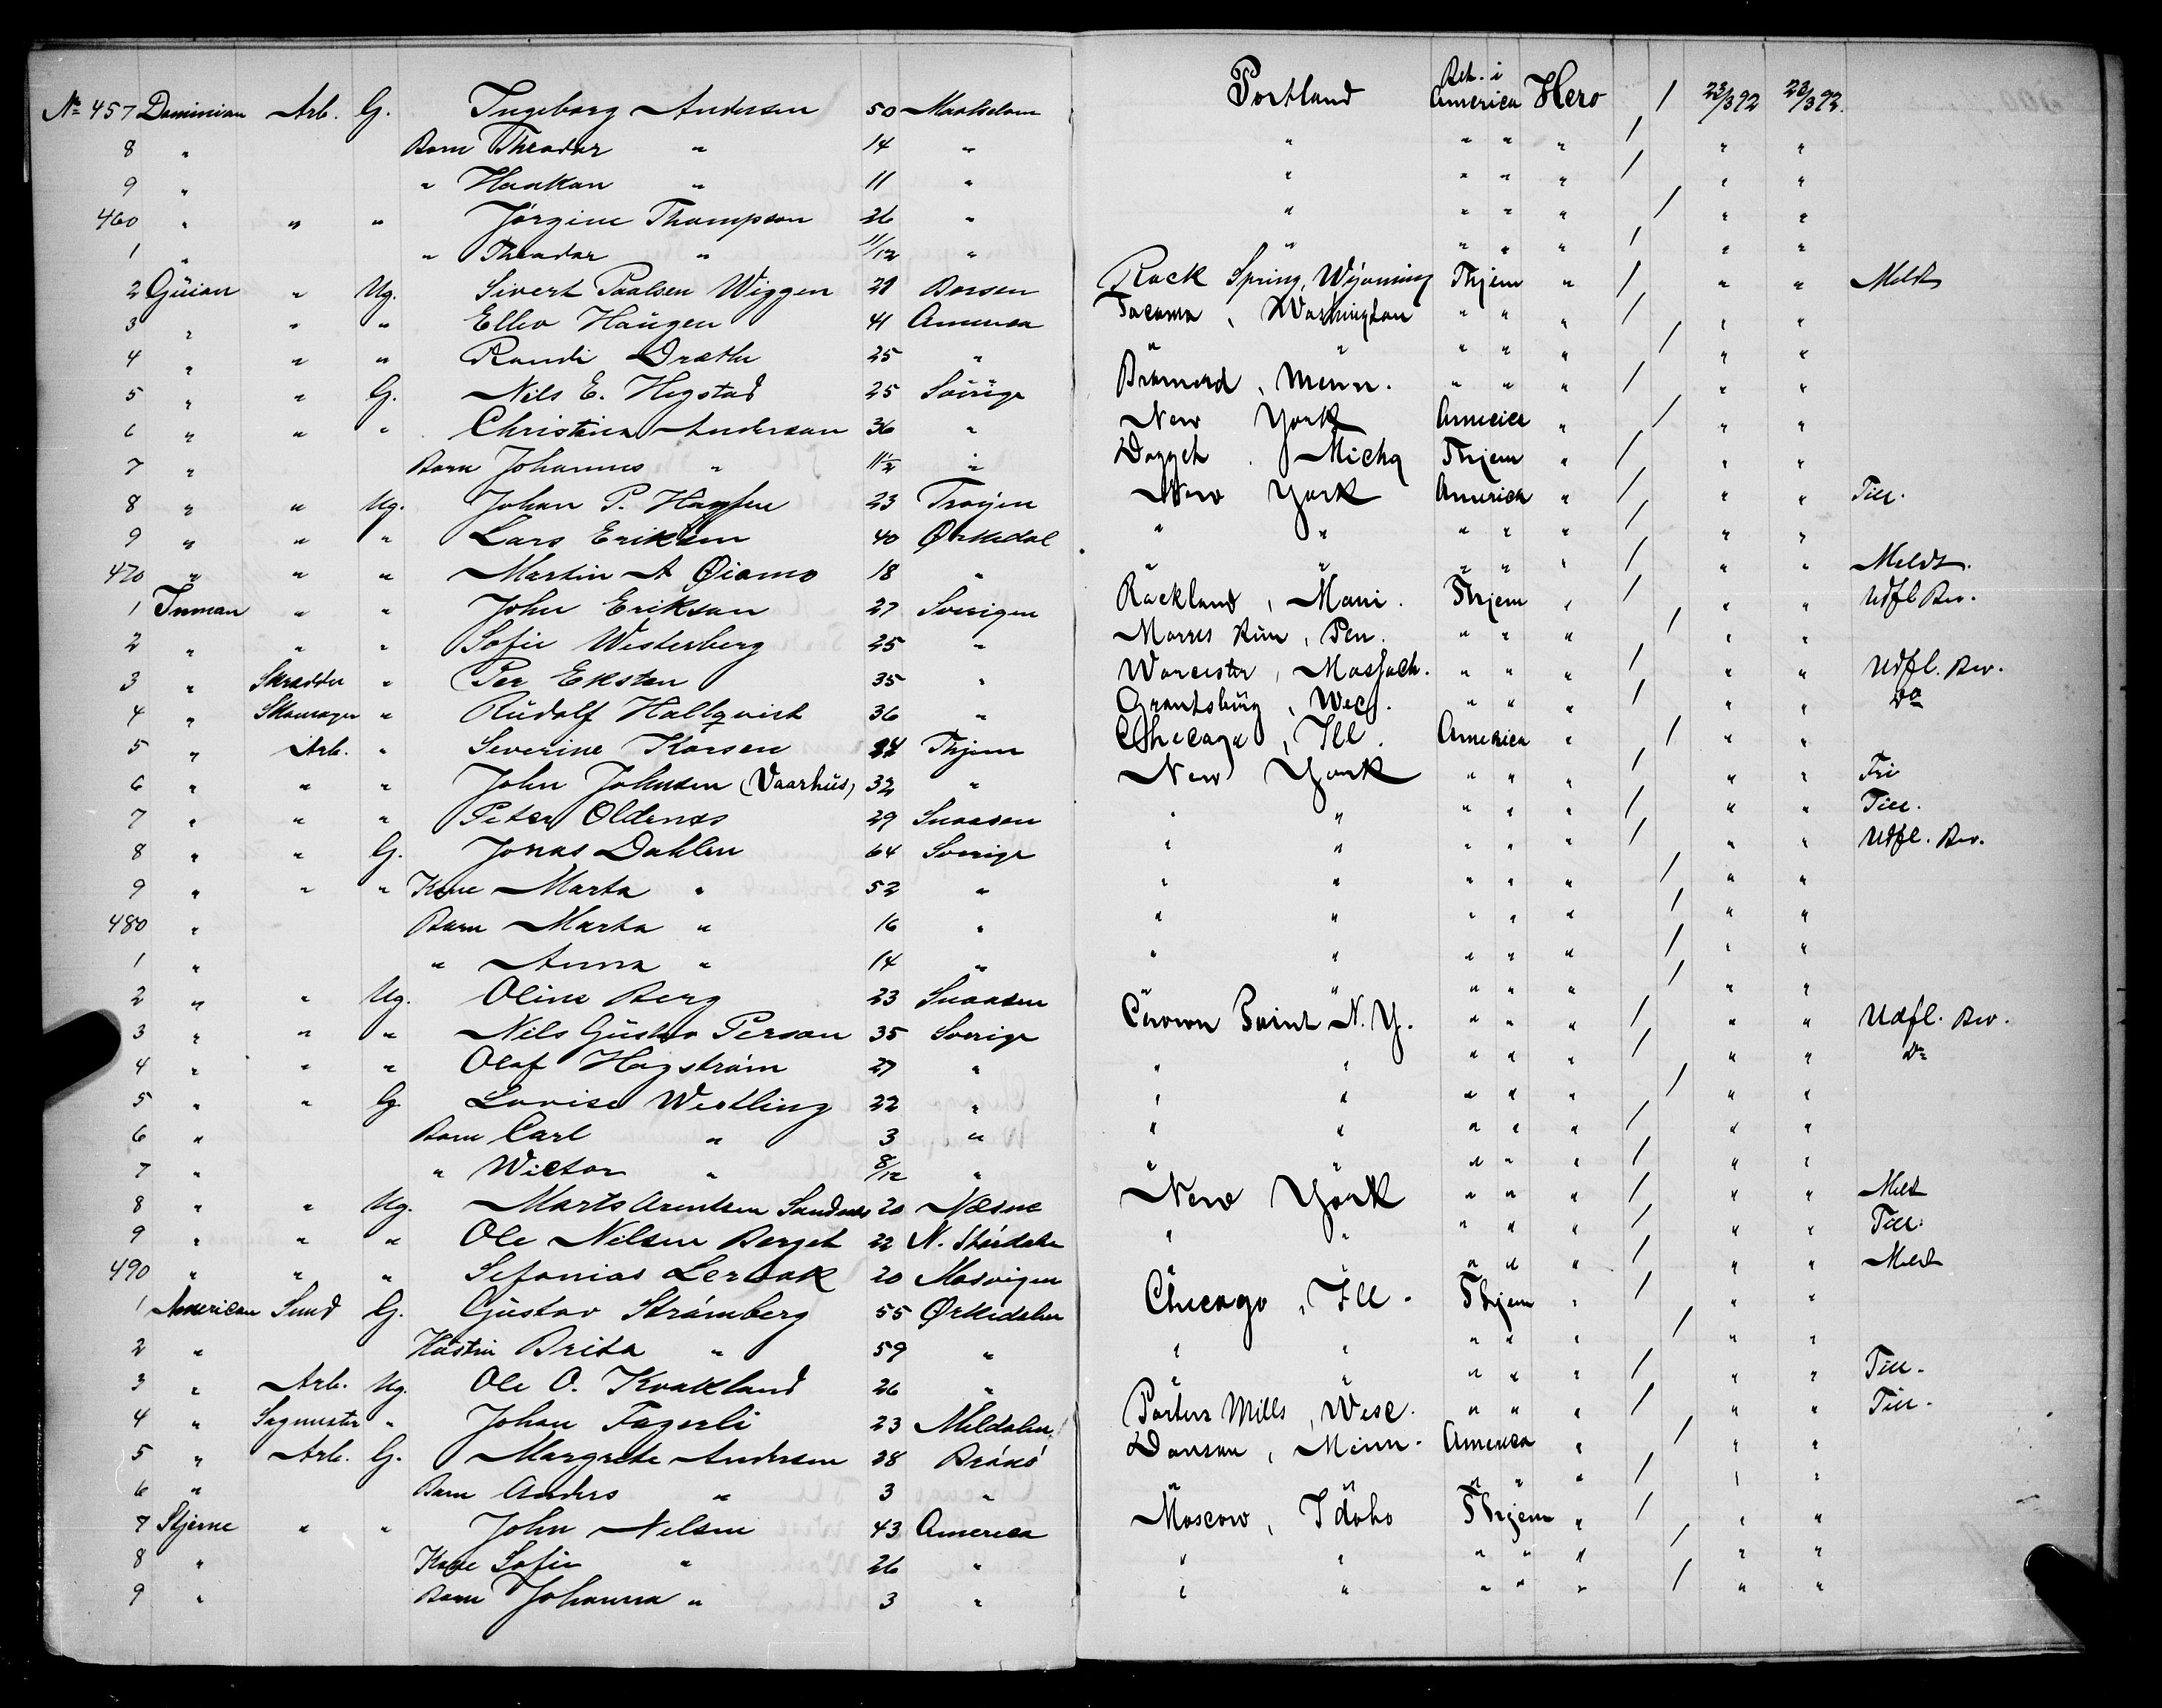 No 457 Dominion Arb. G. Ingeborg Andersen 50 Maalselven Portland Bet. i America Hero / 23/3 92 23/3 92.
8 " Barn Theodor " 14 " " " " " / " "
9 " " Haakon " 11 " " " " " / " "
460 " " " Jørgine Thompson 26 " " " " " / " "
1 " " Theodor " 11/12 " " " " " / " "
2 Guion " Ug. Sivert Paalsen Wiggen 21 Børsen Rock Spring, Wyoming Thjem " / " " Meldt
3 " " " Ellev Haugen 41 America Tacoma, Washington " " " / " "
4 " " " Randi Dræthe 25 " " " " " " / " "
5 " " G. Nils E. Hegstad 25 Sverige Brainerd, Minn. " " " / " "
6 " " " Christina Anderson 36 " New York America " / " "
7 " Barn Johannes " 11 1/2 " Dagget. Micha Thjem " / " "
8 " " Ug. Johan P. 23 New York America " / " " Till.
9 " " " Lars Eriksen 40 Ørkedal " " " " " / " "
470 " " " Martin A Øiamo 18 " " " " " " / " " Meldt.
1 Inman " " John Erikson 27 Sverigen Rockland, Mani. Thjem " / " " Udfl Bev.
2 " " " Sofie Westerberg 25 " Morris Run, Pen. " " " / " "
3 " Skrædder " Per Eksten 35 " Worcister, Massach. " " " / " " Udfl. Bev.
4 " Skomager " Rudolf Hallqvist 36 " Grantsburg, Wecs. " " " / " " do
5 " Arb. " Severine Korsen 24 Thjem Chicago, Ill. America " / " "
6 " " " John Johnsen (Vaarhus) 32 " New York " " " / " " Fri
7 " " " Peter Oldenes 29 Snaasen " " " " " / " " Till.
8 " " G. Jonas Dahlen 64 Sverige " " " " " / " " Udfl. Bev.
9 " " " Kone Marta " 52 " " " " " " / " "
480 " Barn Marta " 16 " " " " " " / " "
1 " " Anna " 14 " " " " " " / " "
2 " " Ug. Oline Berg 23 Snaasen " " " " " / " "
3 " " " Nils Gustav Person 35 Sverige Crown Point N. Y. " " " / " " Udfl. Bev.
4 " " " Olaf Hagström 27 " " " " " " / " " do
5 " " G. Lovise Westling 22 " " " " " " / " "
6 " Barn Carl " 3 " " " " " " / " "
7 " " Wictor " 8/12 " " " " " " / " "
8 " " Ug. Marts Arentsen Sandnes 20 Næsne New York " " " / " " Meldt
9 " " " Ole Nilsen Berget 22 N. Stördalen " " " " " / " " Till.
490 " " " Sefanias Lervak 20 Mosvigen " " " " " / " " Meldt
1 American Smed G. Gustav Strömberg 55 Ørkedalen Chicago, Ill. Thjem " / " "
2 " Hustru Brita " 59 " " " " " " / " "
3 " Arb. Ug. Ole O. Kvakland 26 " " " " " " / " " Till.
4 " Sagmester " Johan Fagerli 23 Meldalen Porters Mills, Wisc. " " " / " " Till.
5 " Arb. G. Margrete Andersen 28 Brönö Danson, Minn. America " / " "
6 " Barn Anders " 3 " " " " " " / " "
7 Stjerne " " John Nilsen 43 America Moscow, Idaho Thjem " / " "
8 " Kone Sofie " 26 " " " " " " / " "
9 " Barn Johanna " 3 " " " " " " / " "